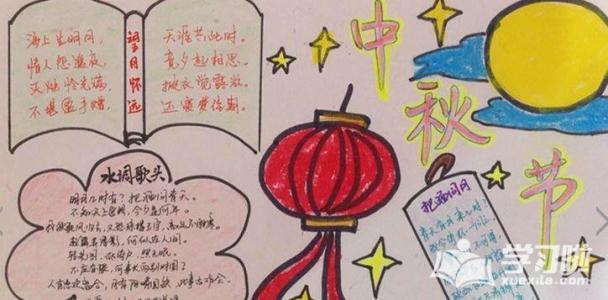 望月怀远
海上生明月,
天涯共此时.
情人怨遥夜,
竟夕起相思.
灭烛怜光满,
披衣觉露滋.
不堪盈手赠,
还寝梦佳期.
中秋节
水调歌头
明月几时有?把酒问青天.
不知天上宫阙,今夕是何年.
我欲乘风归去,又恐琼楼玉宇,高处不胜寒.
起舞弄清影,何似在人间.
转朱阁,低绮户,照无眠.
不应有恨,何事长向别时圆?
人有悲欢离合,月有阴晴圆缺,此事古难全.
把酒问月
学习啦
xuexila.com